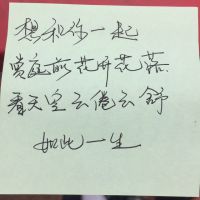 想和你一起
赏庭前花开花落
看天空云倦云舒
如此一生